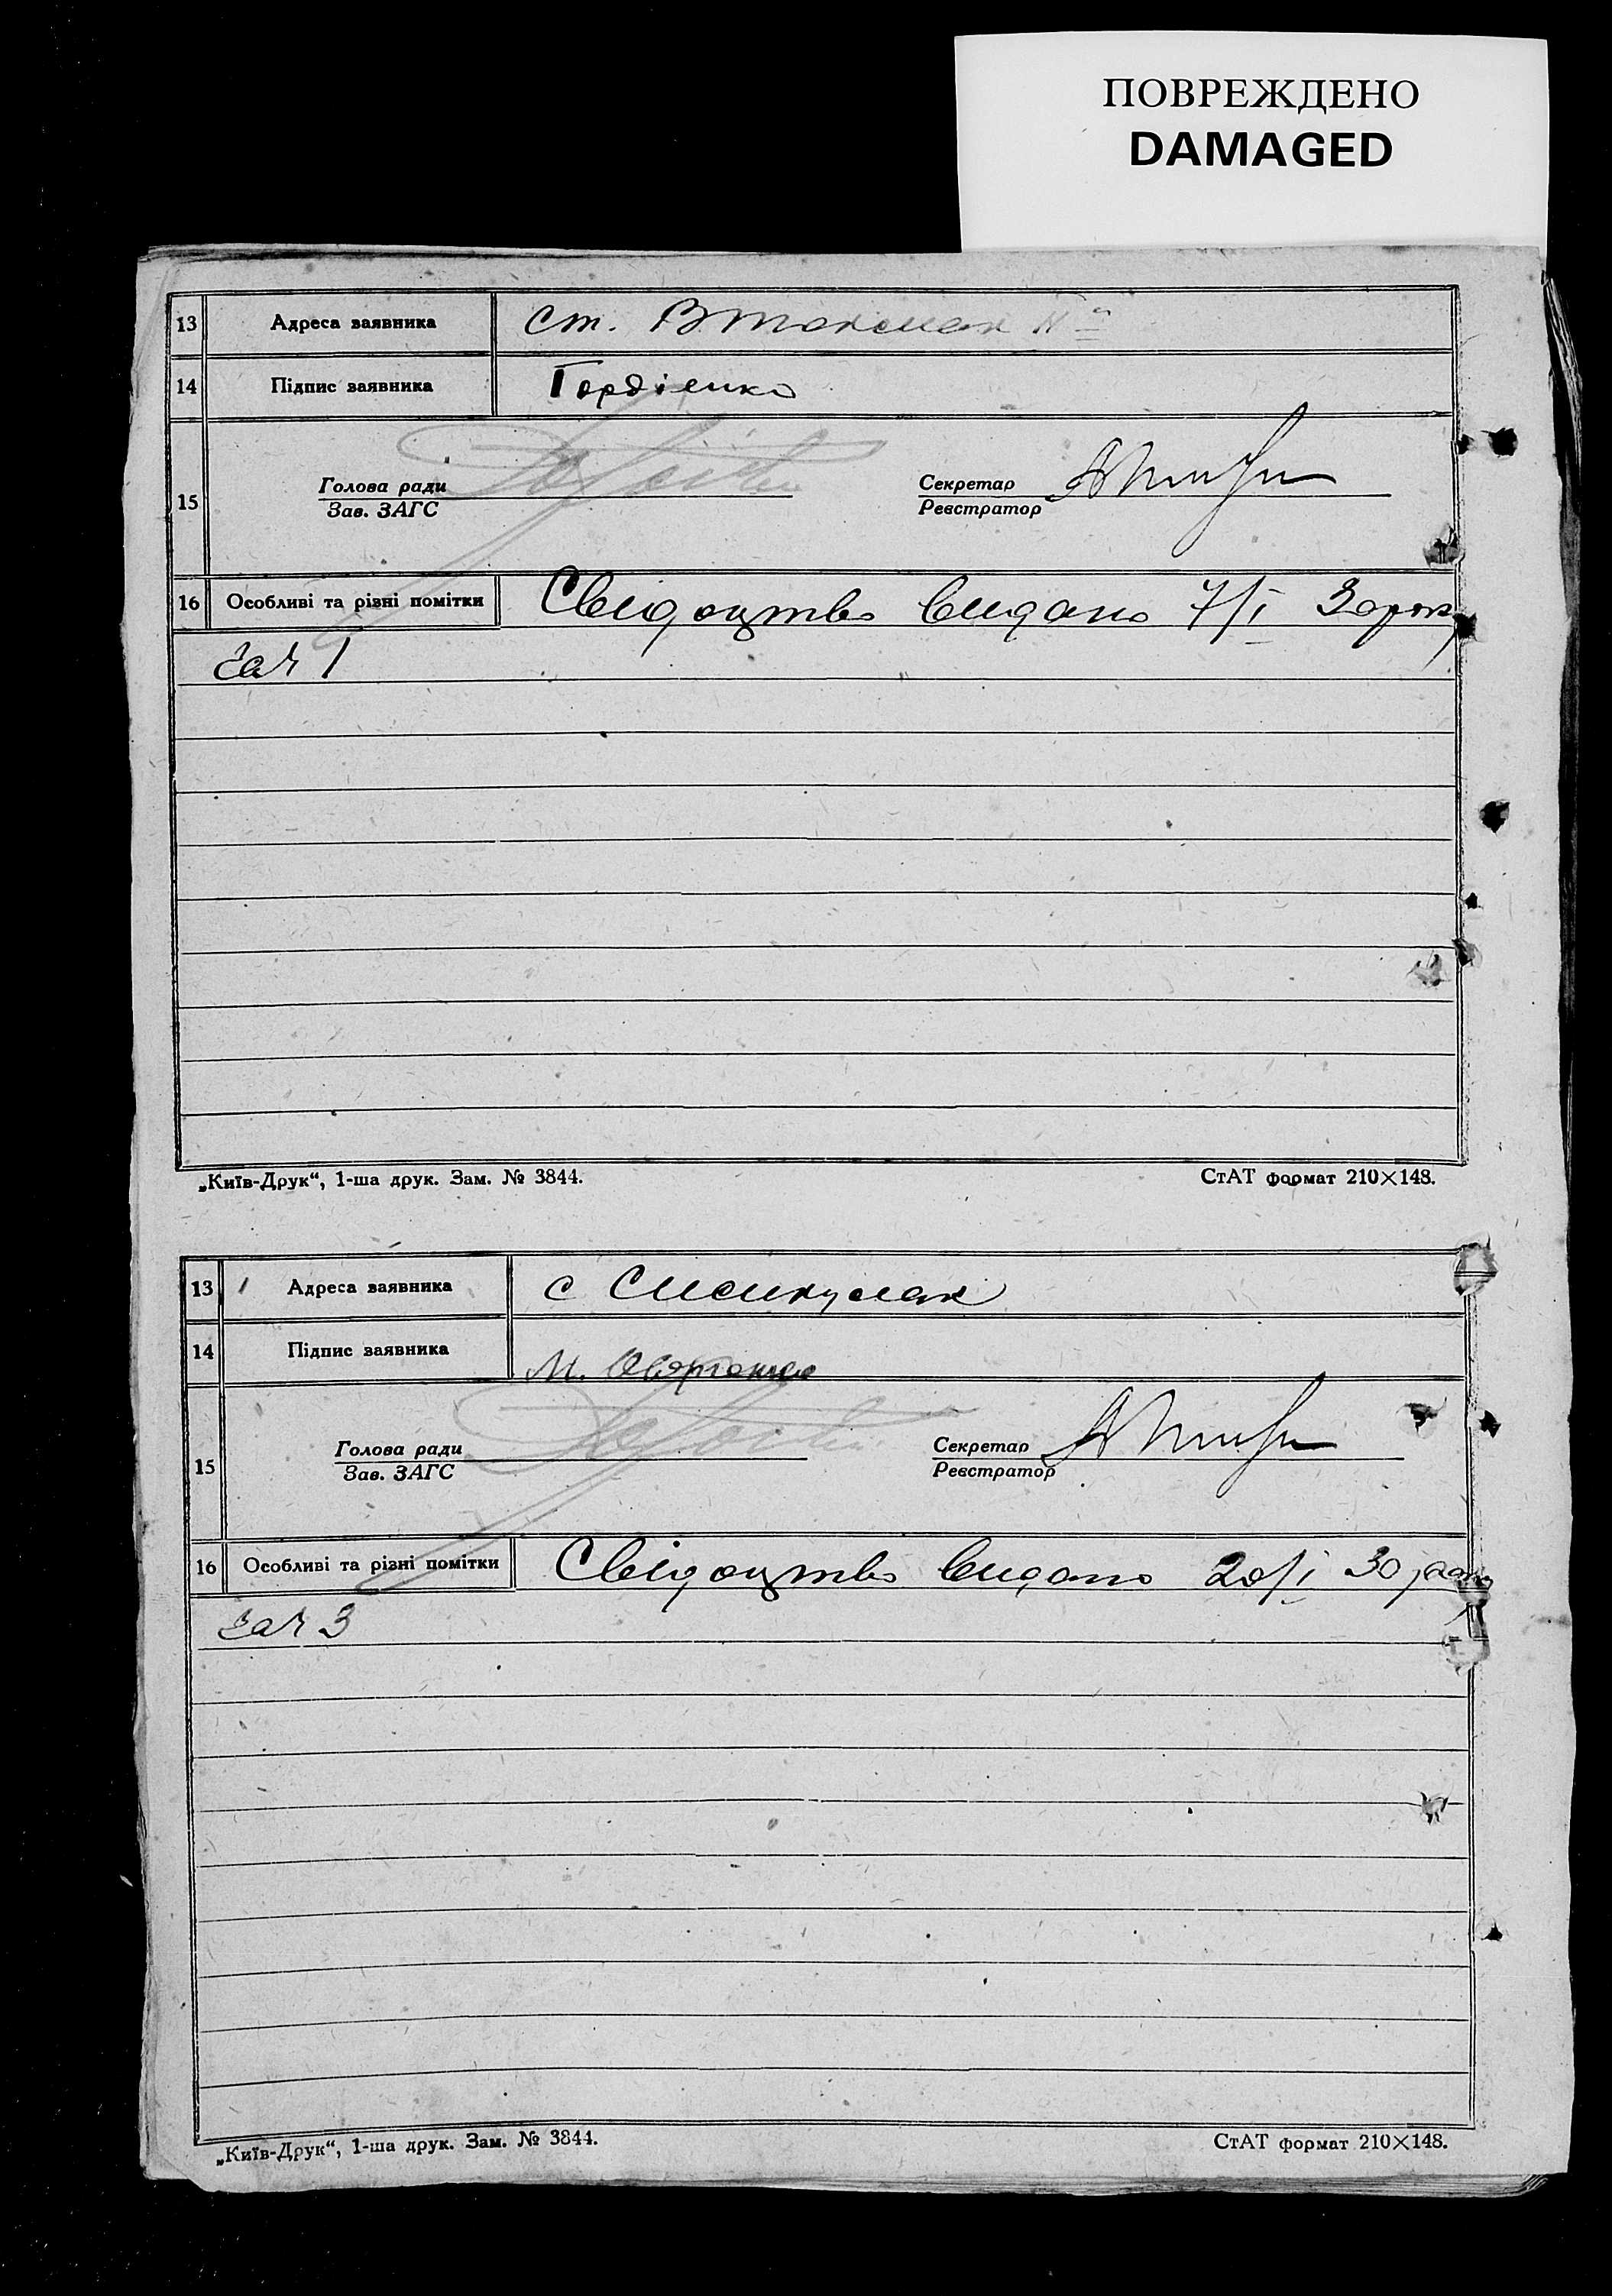 ПОВРЕЖДЕНО
DAMAGED
13 Адреса заявника ст. В Токмак №
14 Підпис заявника Гордієнко
15 Голова ради Секретар
Зав. ЗАГС Реєстратор
16 Особливі та різні помітки Свідоцтво видано 7/I 30 року
за № 1
„Київ-Друк“, 1-ша друк. Зам. № 3844. СтАТ формат 210×148.
13 Адреса заявника с
14 Підпис заявника М.
15 Голова ради Секретар
Зав. ЗАГС Реєстратор
16 Особливі та різні помітки Свідоцтво видано 20/I 30 року
за № 3
„Київ-Друк“, 1-ша друк. Зам. № 3844. СтАТ формат 210×148.